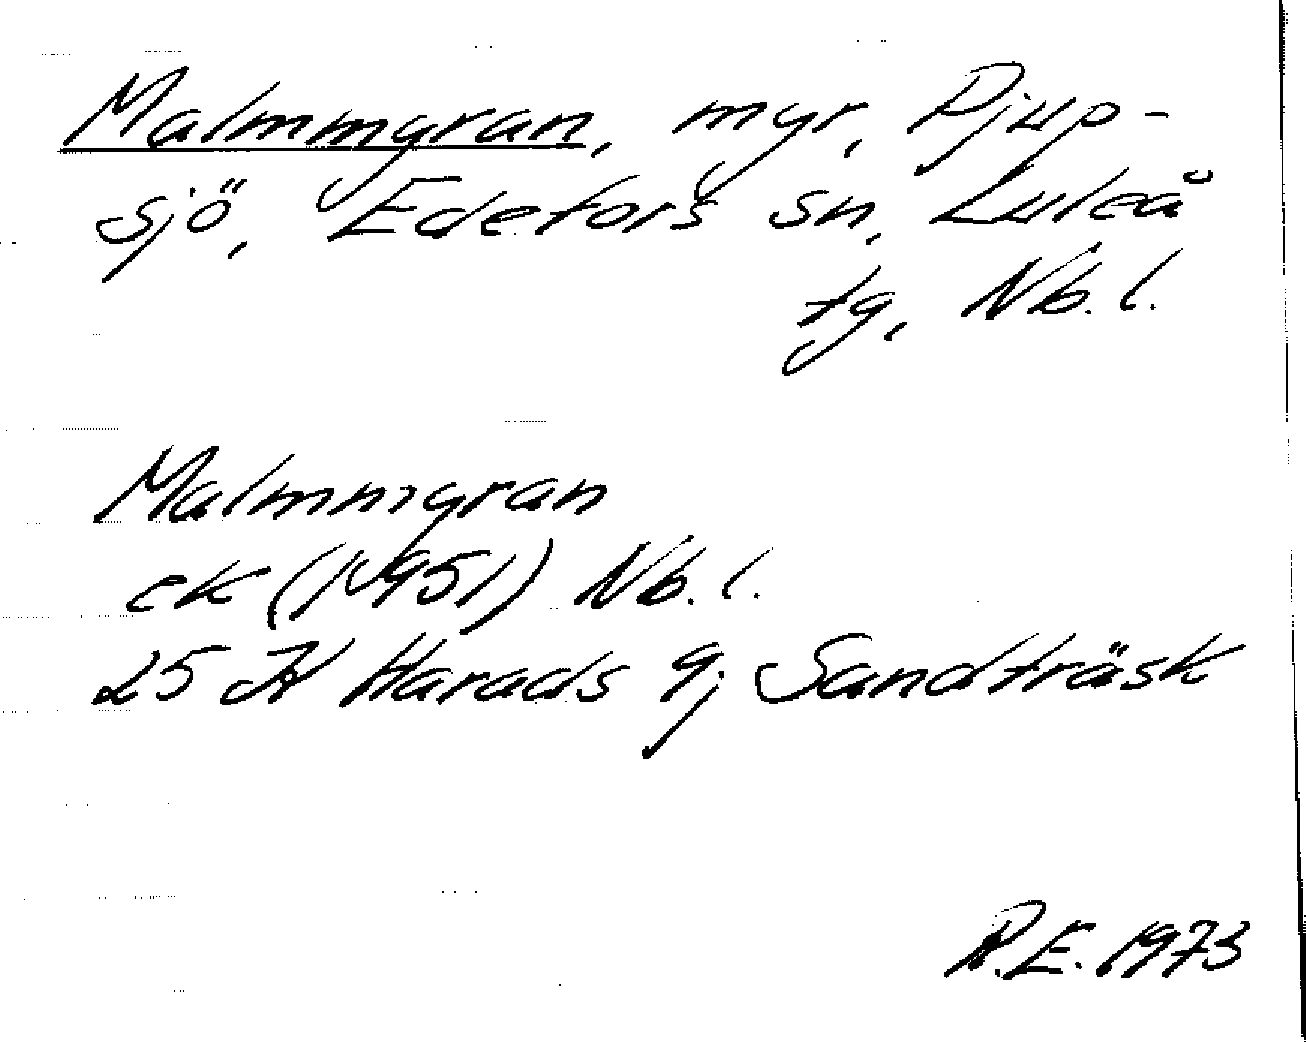 Malmmyran, myr, Djup-
sjö, Edefors sn, Luleå
tg, Nb. l.
Malmmyran
ek (1951) Nb. l.
25 H Harads 9j Sandträsk
R.E. 1973